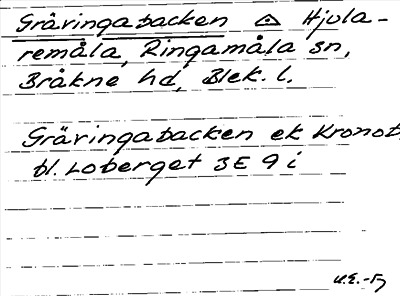 Gråringabacken Hjula-
remåla, Ringamåla sn,
Bråkne hd, Blek. l.
Gråringabacken ek Kronot.
bl. Loberget 3E 9 i